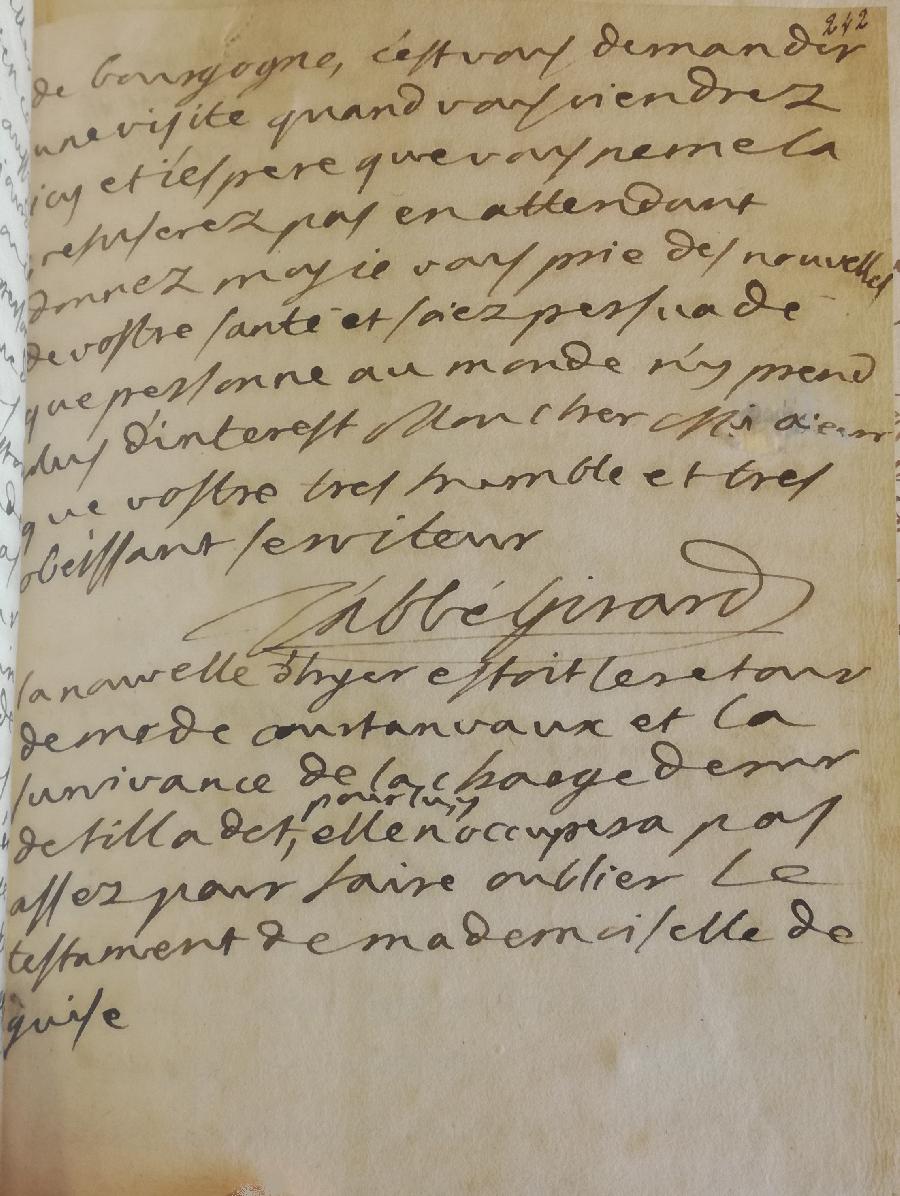 242
de bourgogne, c'est vous demander
une visite quand vous viendrez
icy et i'espere que vous ne me la
refuserez pas en attendant
donnez moy ie vous prie des nouvelles
de vostre santé et soiez persuadé
que personne au monde n'y prend
plus d'interest Mon cher
que vostre tres humble et tres
obéissant serviteur
L'abbé Girard
la nouvelle d'hyer estoit le retour
de mr de courtanvaux et la
survivance de la charge de mr
pour luy
de tilladet, elle n'occupera pas
assez pour faire oublier le
testament de mademoiselle de
guise